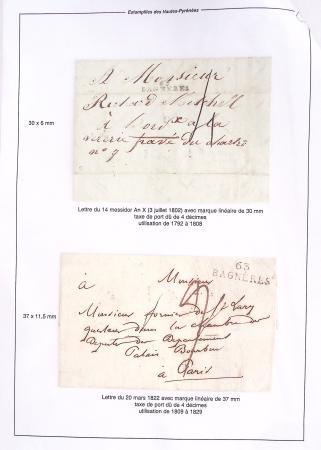 Estampilles des Hautes-Pyrénées
30 x 6 mm
BAGNÈRES
A Monsieur
Richard Mitchell
à la
pavé du
n° 7
Lettre du 14 messidor An X (3 juillet 1802) avec marque linéaire de 30 mm
taxe de port dû de 4 décimes
utilisation de 1792 à 1808
37 x 11,5 mm
63
BAGNÈRES
à Monsieur
Monsieur fornier de St Lary
questeur dans la chambre des
Députés des Departement
Palais Bourbon
à Paris
Lettre du 20 mars 1822 avec marque linéaire de 37 mm
taxe de port dû de 4 décimes
utilisation de 1809 à 1829